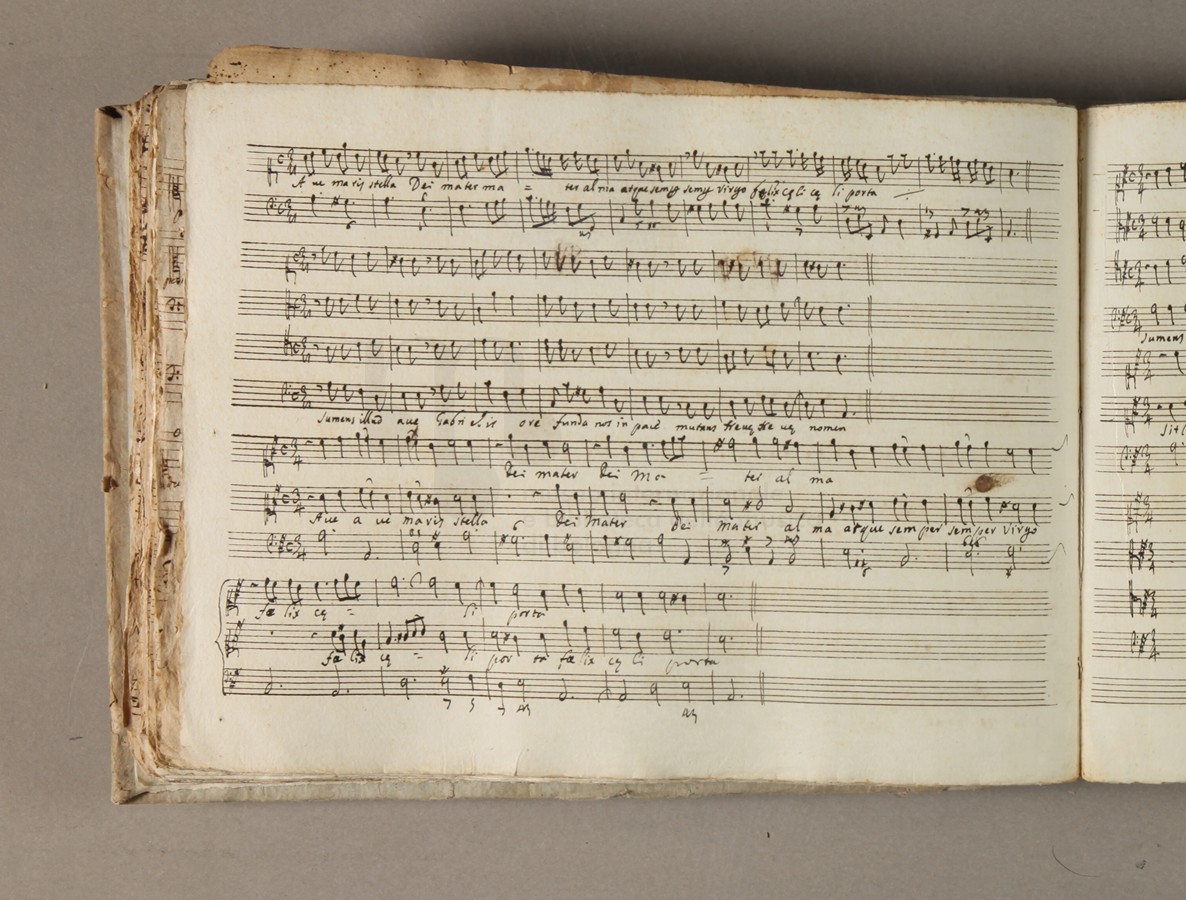 A ve maris stella Dei mater ma = ter alma atque semp semp virgo felix cęli cę li porta
Sumens illud ave Gabrielis ore funda nos in pace mutans nomen
Dei mater Dei Ma = ter al ma
Ave a ve maris stella Dei Mater Dei mater al ma atque semper semper virgo
fæ lix cę = li porta
fæ lix cę = li por ta fæ lix cę li porta
Sumens